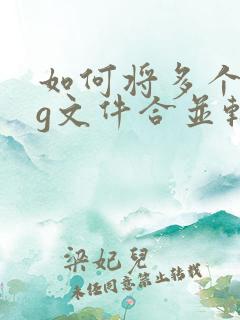 如何将多个
g文件合並
梁妃兒
未经同意禁止转载